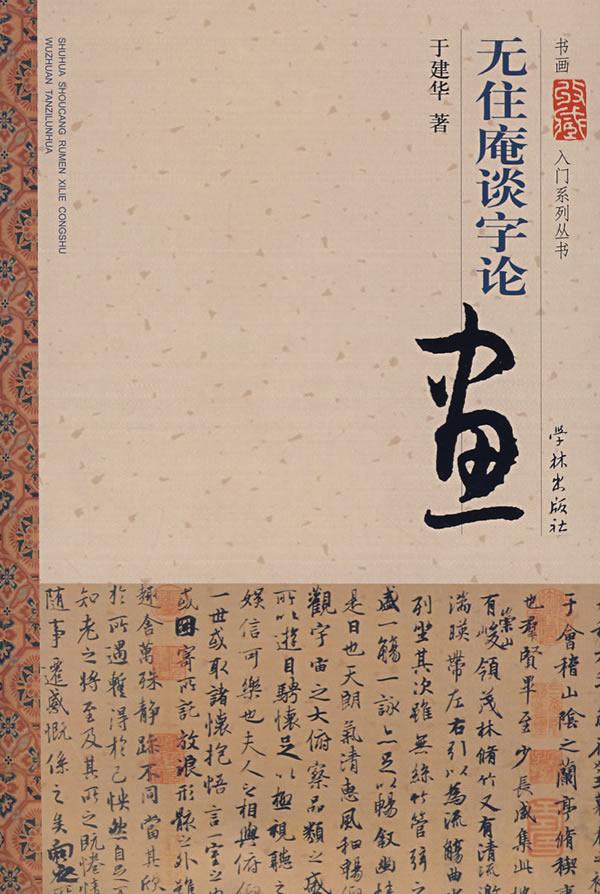 书画收藏入门系列丛书
无住庵谈字论画
于建华 著
学林出版社
SHUHUA SHOUCANG RUMEN XILIE CONGSHU
WUZHUAN TANZILUNHUA
于會稽山陰之蘭亭脩禊
也羣賢畢至少長咸集此
有崇山峻領茂林脩竹又有清流激
湍暎帶左右引以為流觴曲
列坐其次雖無絲竹管弦之
盛一觴一詠亦足以暢敘幽情
是日也天朗氣清惠風和暢仰
觀宇宙之大俯察品類之盛
所以遊目騁懷足以極視聽之
娛信可樂也夫人之相與俯仰
一世或取諸懷抱悟言一室之
或因寄所託放浪形骸之外雖
趣舍萬殊靜躁不同當其欣
於所遇暫得於己怏然自足
知老之將至及其所之既惓情
隨事遷感慨係之矣向之